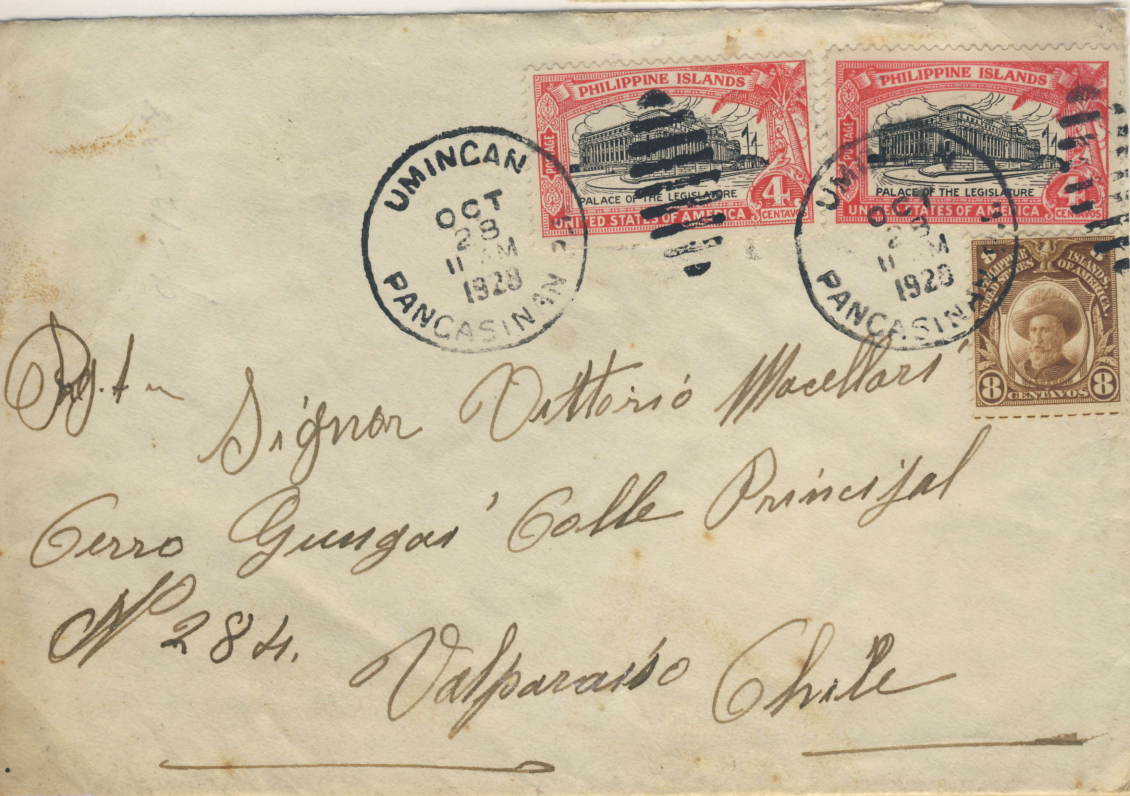 PHILIPPINE ISLANDS
POSTAGE
PALACE OF THE LEGISLATURE
4
CENTAVOS
UNITED STATES OF AMERICA
PHILIPPINE ISLANDS
POSTAGE
PALACE OF THE LEGISLATURE
4
CENTAVOS
UNITED STATES OF AMERICA
UMINGAN
OCT
28
11 AM
1928
PANGASINAN
UMIN N
OCT
28
11 AM
1928
PANGASINAN
PHILIPPINE ISLANDS
UNITED STATES OF AMERICA.
8 8
CENTAVOS
Signor Vittorio Macellari
Cerro Gungas Calle Principal
Nº 284.
Valparaiso Chile